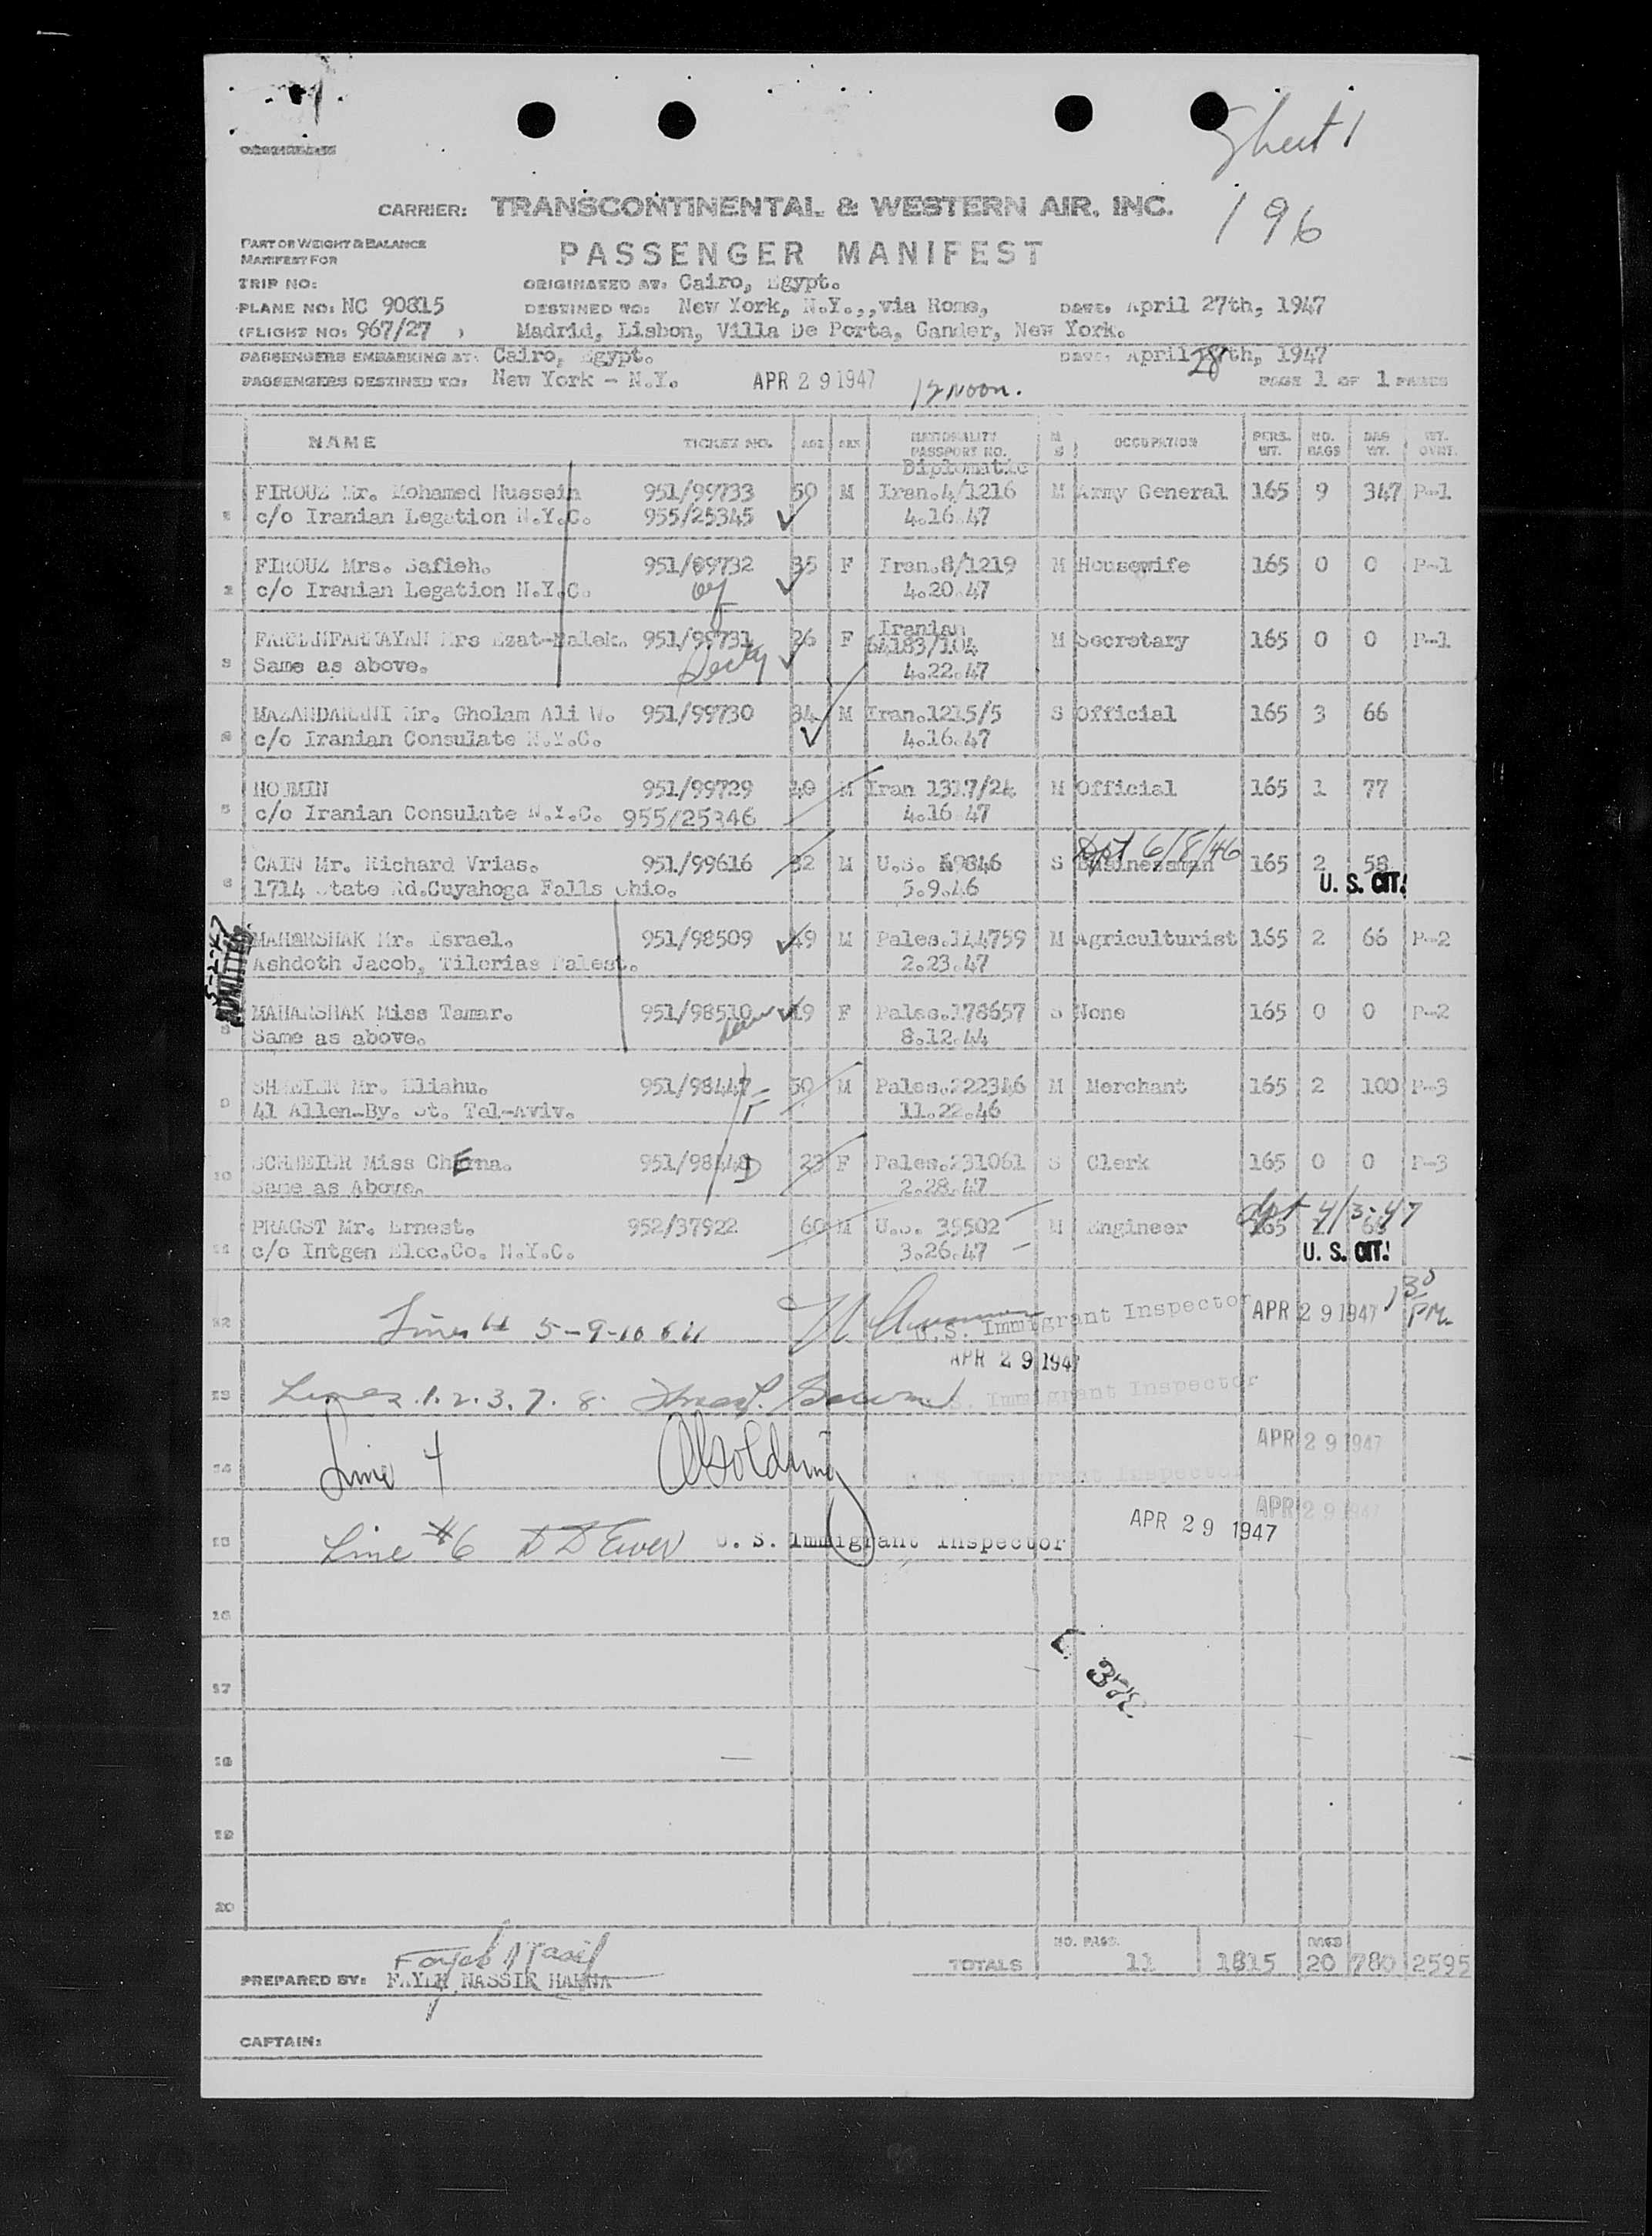 Sheet 1
196
CARRIER: TRANSCONTINENTAL & WESTERN AIR, INC.
PART OF WEIGHT & BALANCE
MANIFEST FOR
PASSENGER MANIFEST
TRIP NO: ORIGINATED AT: Cairo, Egypt.
PLANE NO: NC 90815 DESTINED TO: New York, N.Y.,,via Rome, DATE: April 27th, 1947
(FLIGHT NO: 967/27 ) Madrid, Lisbon, Villa De Porta, Gander, New York.
PASSENGERS EMBARKING AT: Cairo, Egypt. DATE: April 28th, 1947
PASSENGERS DESTINED TO: New York - N.Y. APR 29 1947 12 Noon. PAGE 1 OF 1 PAGES
NAME TICKET NO. AGE SEX NATIONALITY PASSPORT NO. M S OCCUPATION PERS. WT. NO. BAGS BAG WT. WT. OVHT.
Diplomatic
FIROUZ Mr. Mohamed Hussein 951/99733 50 M Iran.4/1216 M Army General 165 9 347 P-1
1 c/o Iranian Legation N.Y.C. 955/25345 4.16.47
FIROUZ Mrs. Safieh. 951/99732 35 F Iran.8/1219 M Housewife 165 0 0 P-1
2 c/o Iranian Legation N.Y.C. 4.20.47
Mrs Ezat-Malek. 951/99731 26 F Iranian 64183/104 M Secretary 165 0 0 P-1
3 Same as above. Secty 4.22.47
MAZANDARANI Mr. Gholam Ali W. 951/99730 34 M Iran.1215/5 S Official 165 3 66
4 c/o Iranian Consulate N.Y.C. 4.16.47
HOJMIN 951/99729 40 M Iran 1317/24 M Official 165 1 77
5 c/o Iranian Consulate N.Y.C. 955/25346 4.16 47
Dpt 6/8/46
CAIN Mr. Richard Vrias. 951/99616 32 M U.S. 9846 S Businessman 165 2 58
6 1714 State Rd.Cuyahoga Falls Ohio. 5.9.46 U. S. CIT.
5-2-47
ADMITTED
MAHARSHAK Mr. Israel. 951/98509 49 M Pales.144759 M Agriculturist 165 2 66 P-2
Ashdoth Jacob, Tilerias Palest. 2.23.47
MAHARSHAK Miss Tamar. 951/98510 19 F Pales.178657 S None 165 0 0 P-2
8 Same as above. 8.12.44
Mr. Eliahu. 951/98447 50 M Pales.222346 M Merchant 165 2 100 P-3
9 41 Allen-By. St. Tel-Aviv. 11.22.46
SCHMEIER Miss ChErna. 951/98448 23 F Pales.231061 S Clerk 165 0 0 P-3
10 Same as Above. 2.28.47
dpt 4/3-47
PRAGST Mr. Ernest. 952/37922 60 M U.S. 35502 M Engineer 165 66
11 c/o Intgen Elec.Co. N.Y.C. 3.26.47 U. S. CIT.
12 Lines 5-9-10 & 11 U.S. Immigrant Inspector APR 29 1947 1 30 PM.
APR 29 1947
13 Lines 1.2.3.7.8. U.S. Immigrant Inspector
APR 29 1947
14 Line 4 U.S. Immigrant Inspector
APR 29 1947
15 Line #6 D D Ewer U. S. Immigrant Inspector APR 29 1947
16
17
18
19
20
NO. PASS. BAGS
TOTALS 11 1815 20 780 2595
PREPARED BY: FAYEK NASSIR HANNA
CAPTAIN: